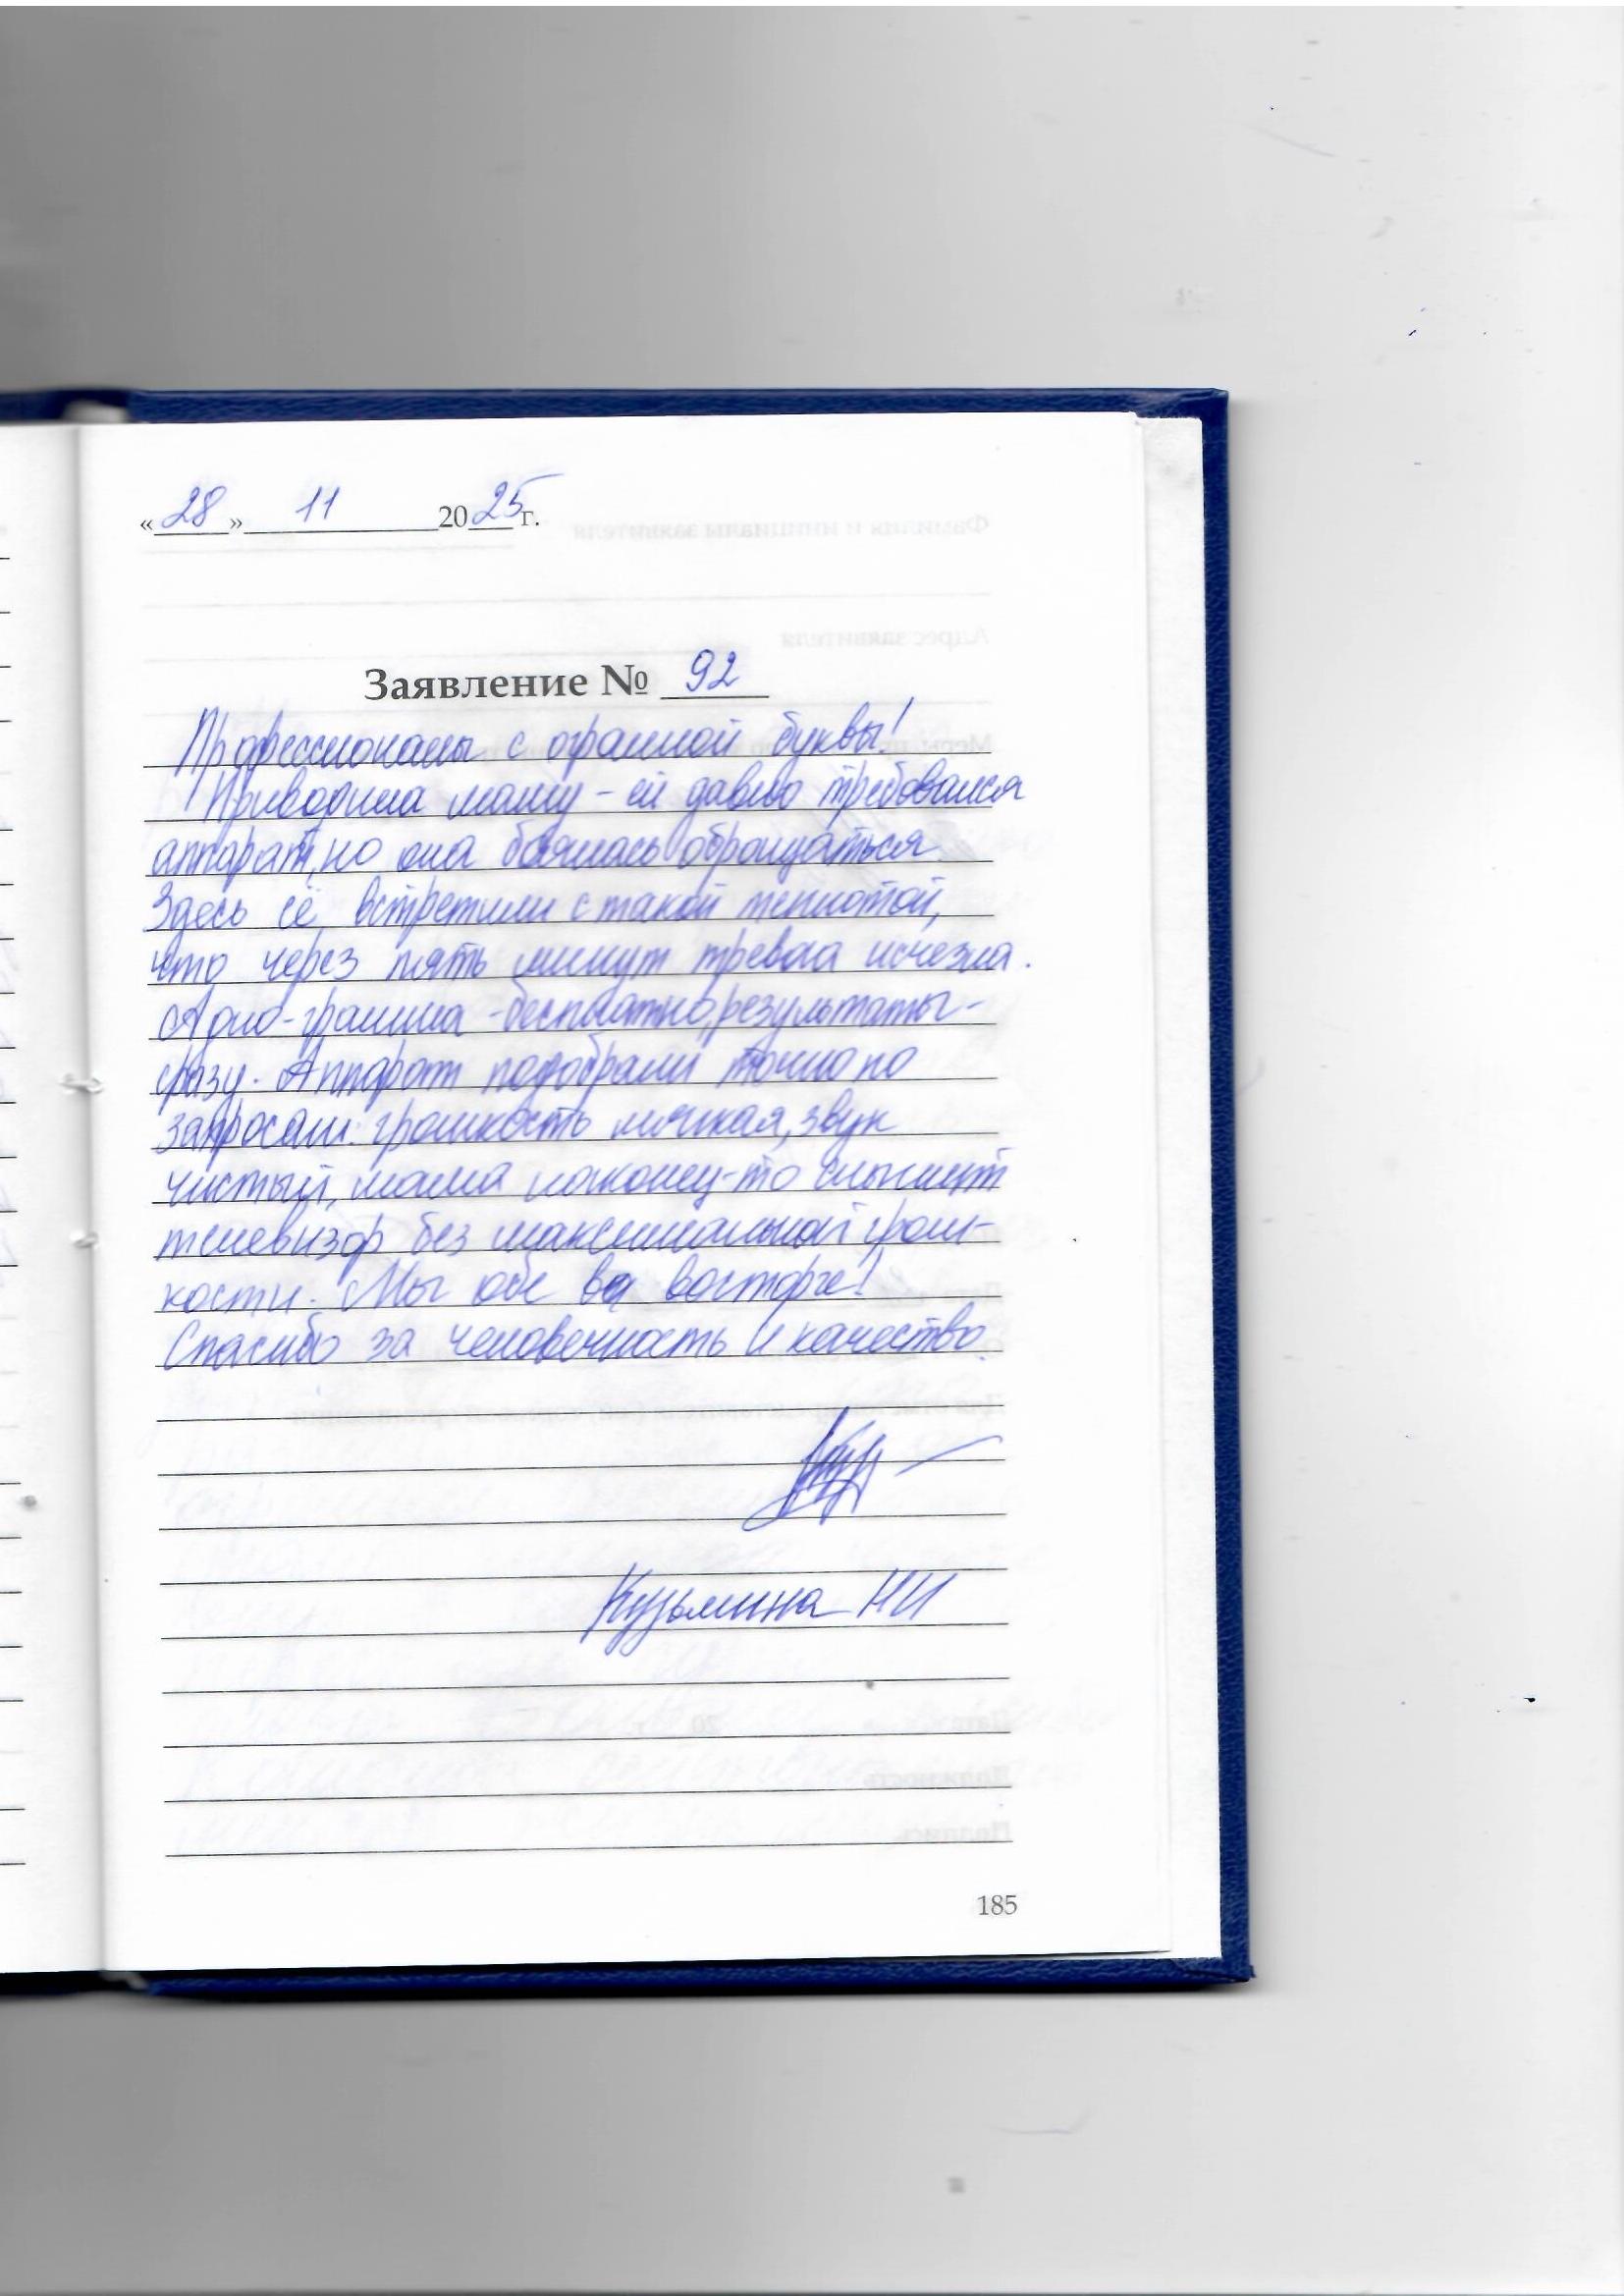 «28» 11 2025 г.
Заявление № 92
Профессионалы с огромной буквы!
Приводила маму - ей давно требовался
аппарат, но она боялась обращаться.
Здесь её встретили с такой теплотой,
что через пять минут тревога исчезла.
Аудио-грамма - бесплатно, результаты -
сразу. Аппарат подобрали точно по
запросам: громкость мягкая, звук
чистый, мама наконец-то слышит
телевизор без максимальной гром-
кости. Мы обе в восторге!
Спасибо за человечность и качество.
Кузьмина НИ
185